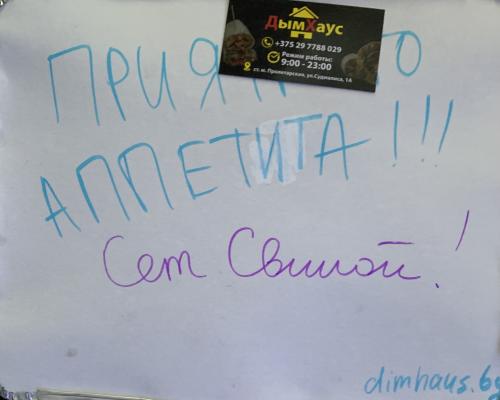 ДымХаус
+375 29 7788 029
Режим работы:
9:00 - 23:00
ст. м. Пролетарская, ул.Судмалиса, 1А
АППЕТИТА!!!
Сет Свиной!
dimhaus.by